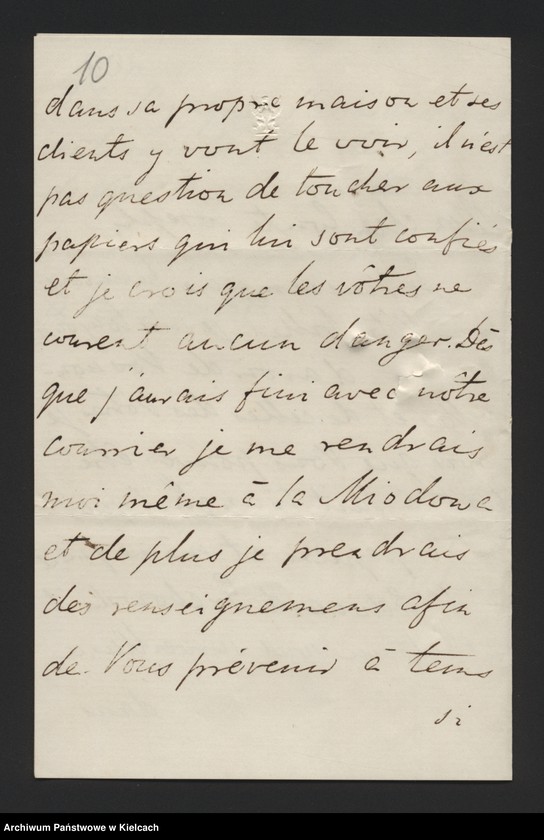 10
dans sa propre maison et ses
clients y vont le voir, il n'est
pas question de toucher aux
papiers qui lui sont confiés
et je crois que les vôtres ne
courent aucun danger. Dès
que j'aurais fini avec nôtre
courrier je me rendrais
moi même à la Miodowa
et de plus je prendrais
des renseignemens afin
de Vous prévenir à tems
si
Archiwum Państwowe w Kielcach